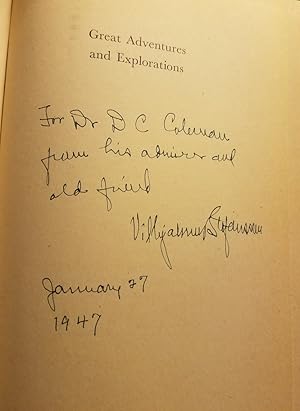 Great Adventures
and Explorations
For Dr D C Coleman
from his admirer and
old friend
Vilhjalmur Stefansson
January 27
1947